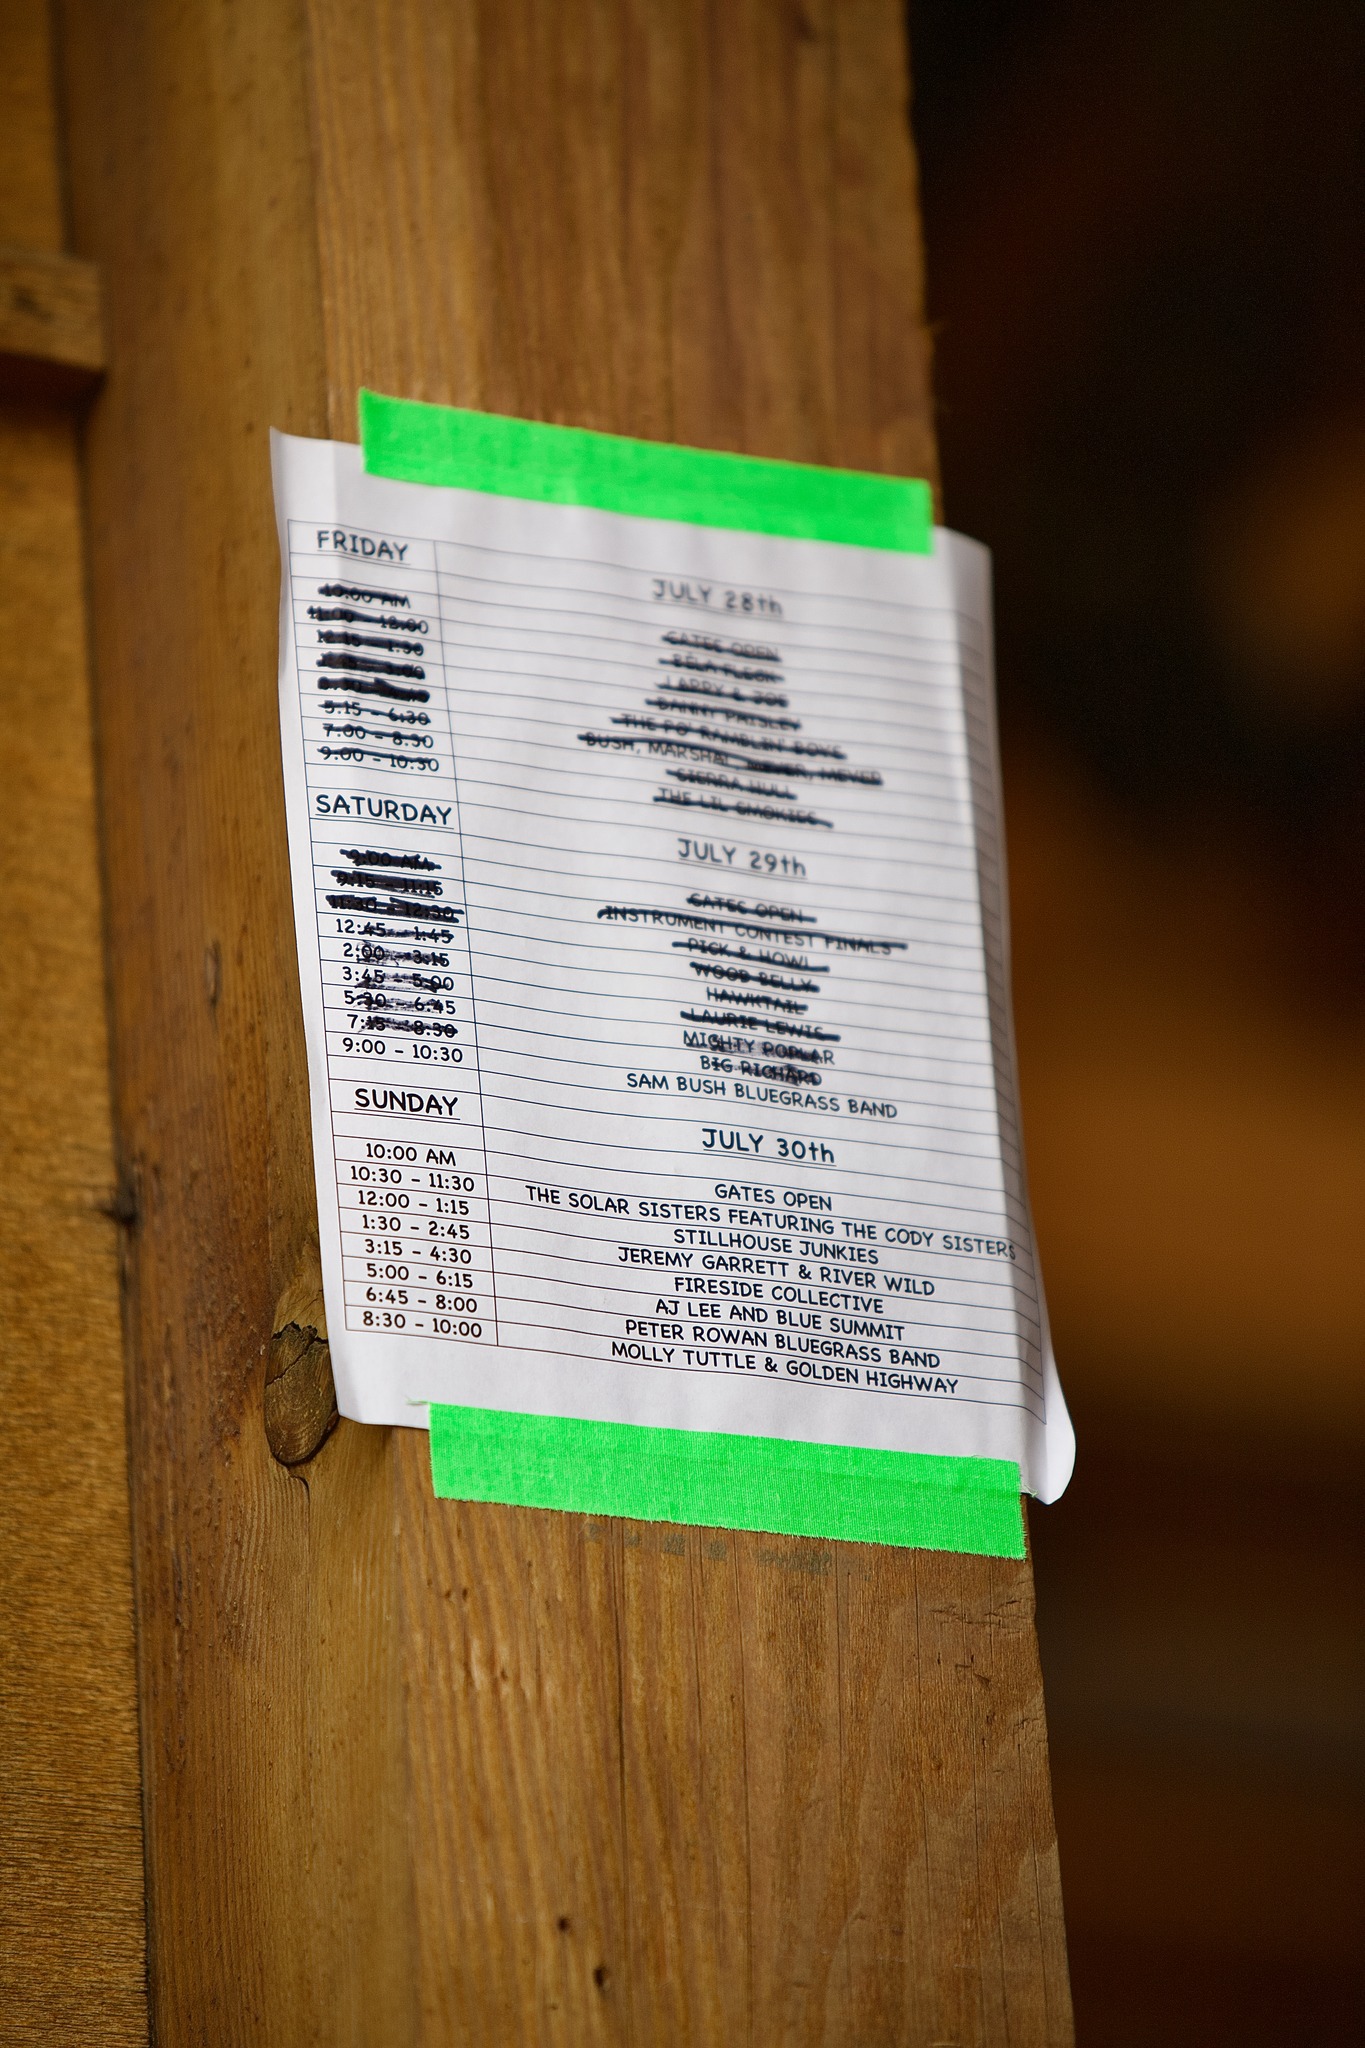 FRIDAY JULY 28th
10:00 AM GATES OPEN
11:00 - 12:00 BÉLA FLECK
12:15 - 1:30 LARRY & JOE
DANNY PAISLEY
THE PO' RAMBLIN' BOYS
5:15 - 6:30 BUSH, MARSHALL, MEYER, MEYER
7:00 - 8:30 SIERRA HULL
9:00 - 10:30 THE LIL SMOKIES
SATURDAY JULY 29th
9:00 AM GATES OPEN
9:15 - 11:15 INSTRUMENT CONTEST FINALS
11:30 - 12:30 PICK & HOWL
12:45 - 1:45 WOOD BELLY
2:00 - 3:15 HAWKTAIL
3:45 - 5:00 LAURIE LEWIS
5:30 - 6:45 MIGHTY POPLAR
7:15 - 8:30 BIG RICHARD
9:00 - 10:30 SAM BUSH BLUEGRASS BAND
SUNDAY JULY 30th
10:00 AM GATES OPEN
10:30 - 11:30 THE SOLAR SISTERS FEATURING THE CODY SISTERS
12:00 - 1:15 STILLHOUSE JUNKIES
1:30 - 2:45 JEREMY GARRETT & RIVER WILD
3:15 - 4:30 FIRESIDE COLLECTIVE
5:00 - 6:15 AJ LEE AND BLUE SUMMIT
6:45 - 8:00 PETER ROWAN BLUEGRASS BAND
8:30 - 10:00 MOLLY TUTTLE & GOLDEN HIGHWAY